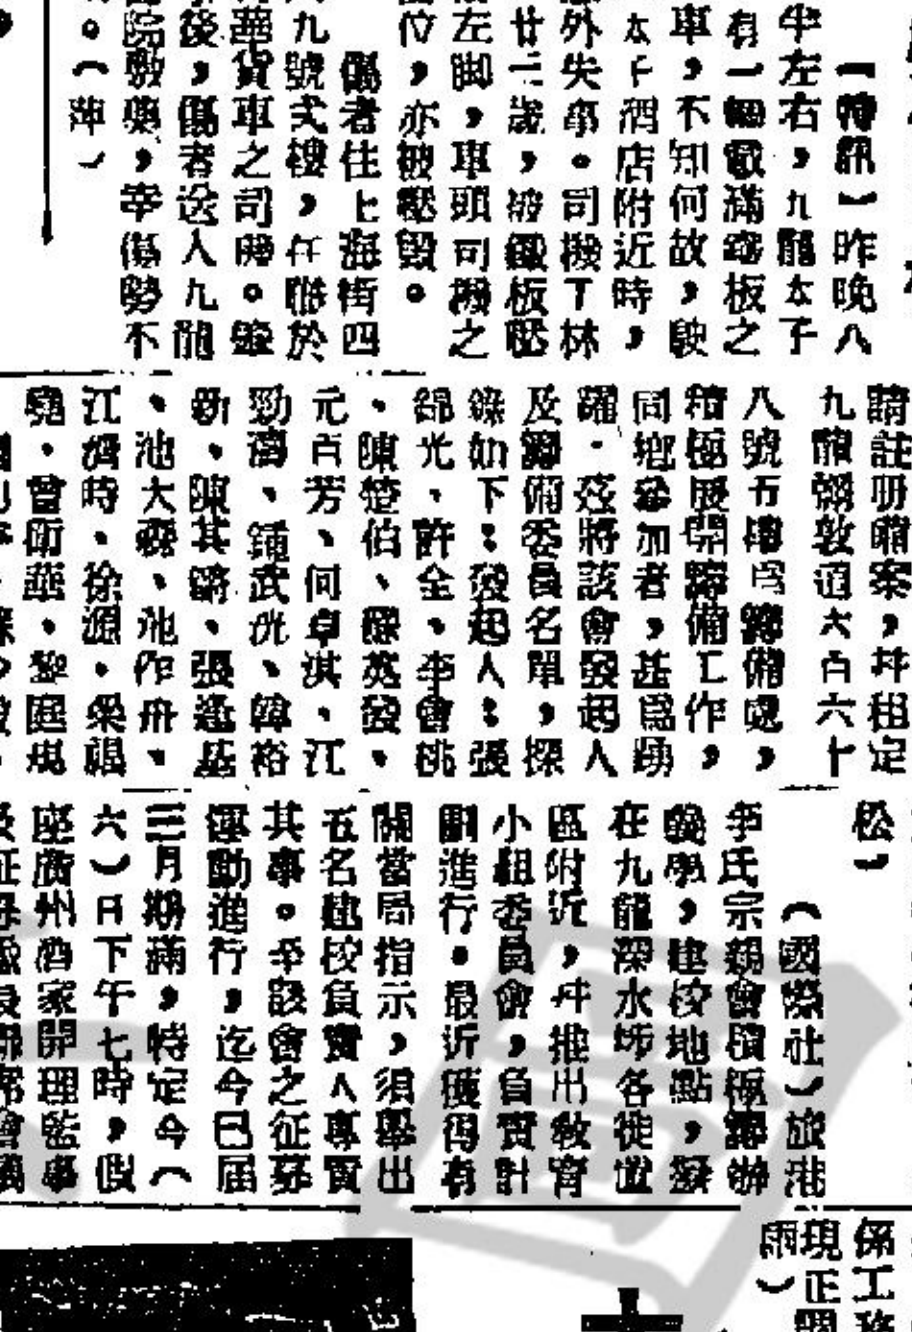 【特訊】昨晚八
半左右，九龍太子
有一輛載滿鐵板之
車，不知何故，駛
太子酒店附近時，
外失事。司機丁林
廿二歲，被鐵板壓
左脚，車頭司機之
位，亦被壓毀。
傷者住上海街四
九號弍樓，任職於
華貨車之司機。
後，傷者送入九龍
院敷藥，幸傷勢不
。（萍）
請註册備案，幷租定
九龍彌敦道六百六十
八號五樓爲籌備處，
積極展開籌備工作，
同鄉參加者，甚爲踴
躍．茲將該會發起人
及籌備委員名單，探
錄如下：發起人：張
錦光、許全、李會桃
、陳楚伯、英發、
元百芳、何卓淇、江
勁、鍾武、韓裕
新、陳其、張基
、池大、池作舟、
江時、徐源、梁
曾衛華、黎庭
松）
（國際社）旅港
李氏宗親會積極籌辦
義學，建校地點，擬
在九龍深水埗各徙置
區附近，幷推出敎育
小組委員會，負責計
劃進行。最近獲得有
關當局指示，須舉出
五名建校負責人專責
其事。查該會之征募
運動進行，迄今已屆
三月期滿，特定今（
六）日下午七時，假
座廣州酒家開理監事
係工務
現正
雨）